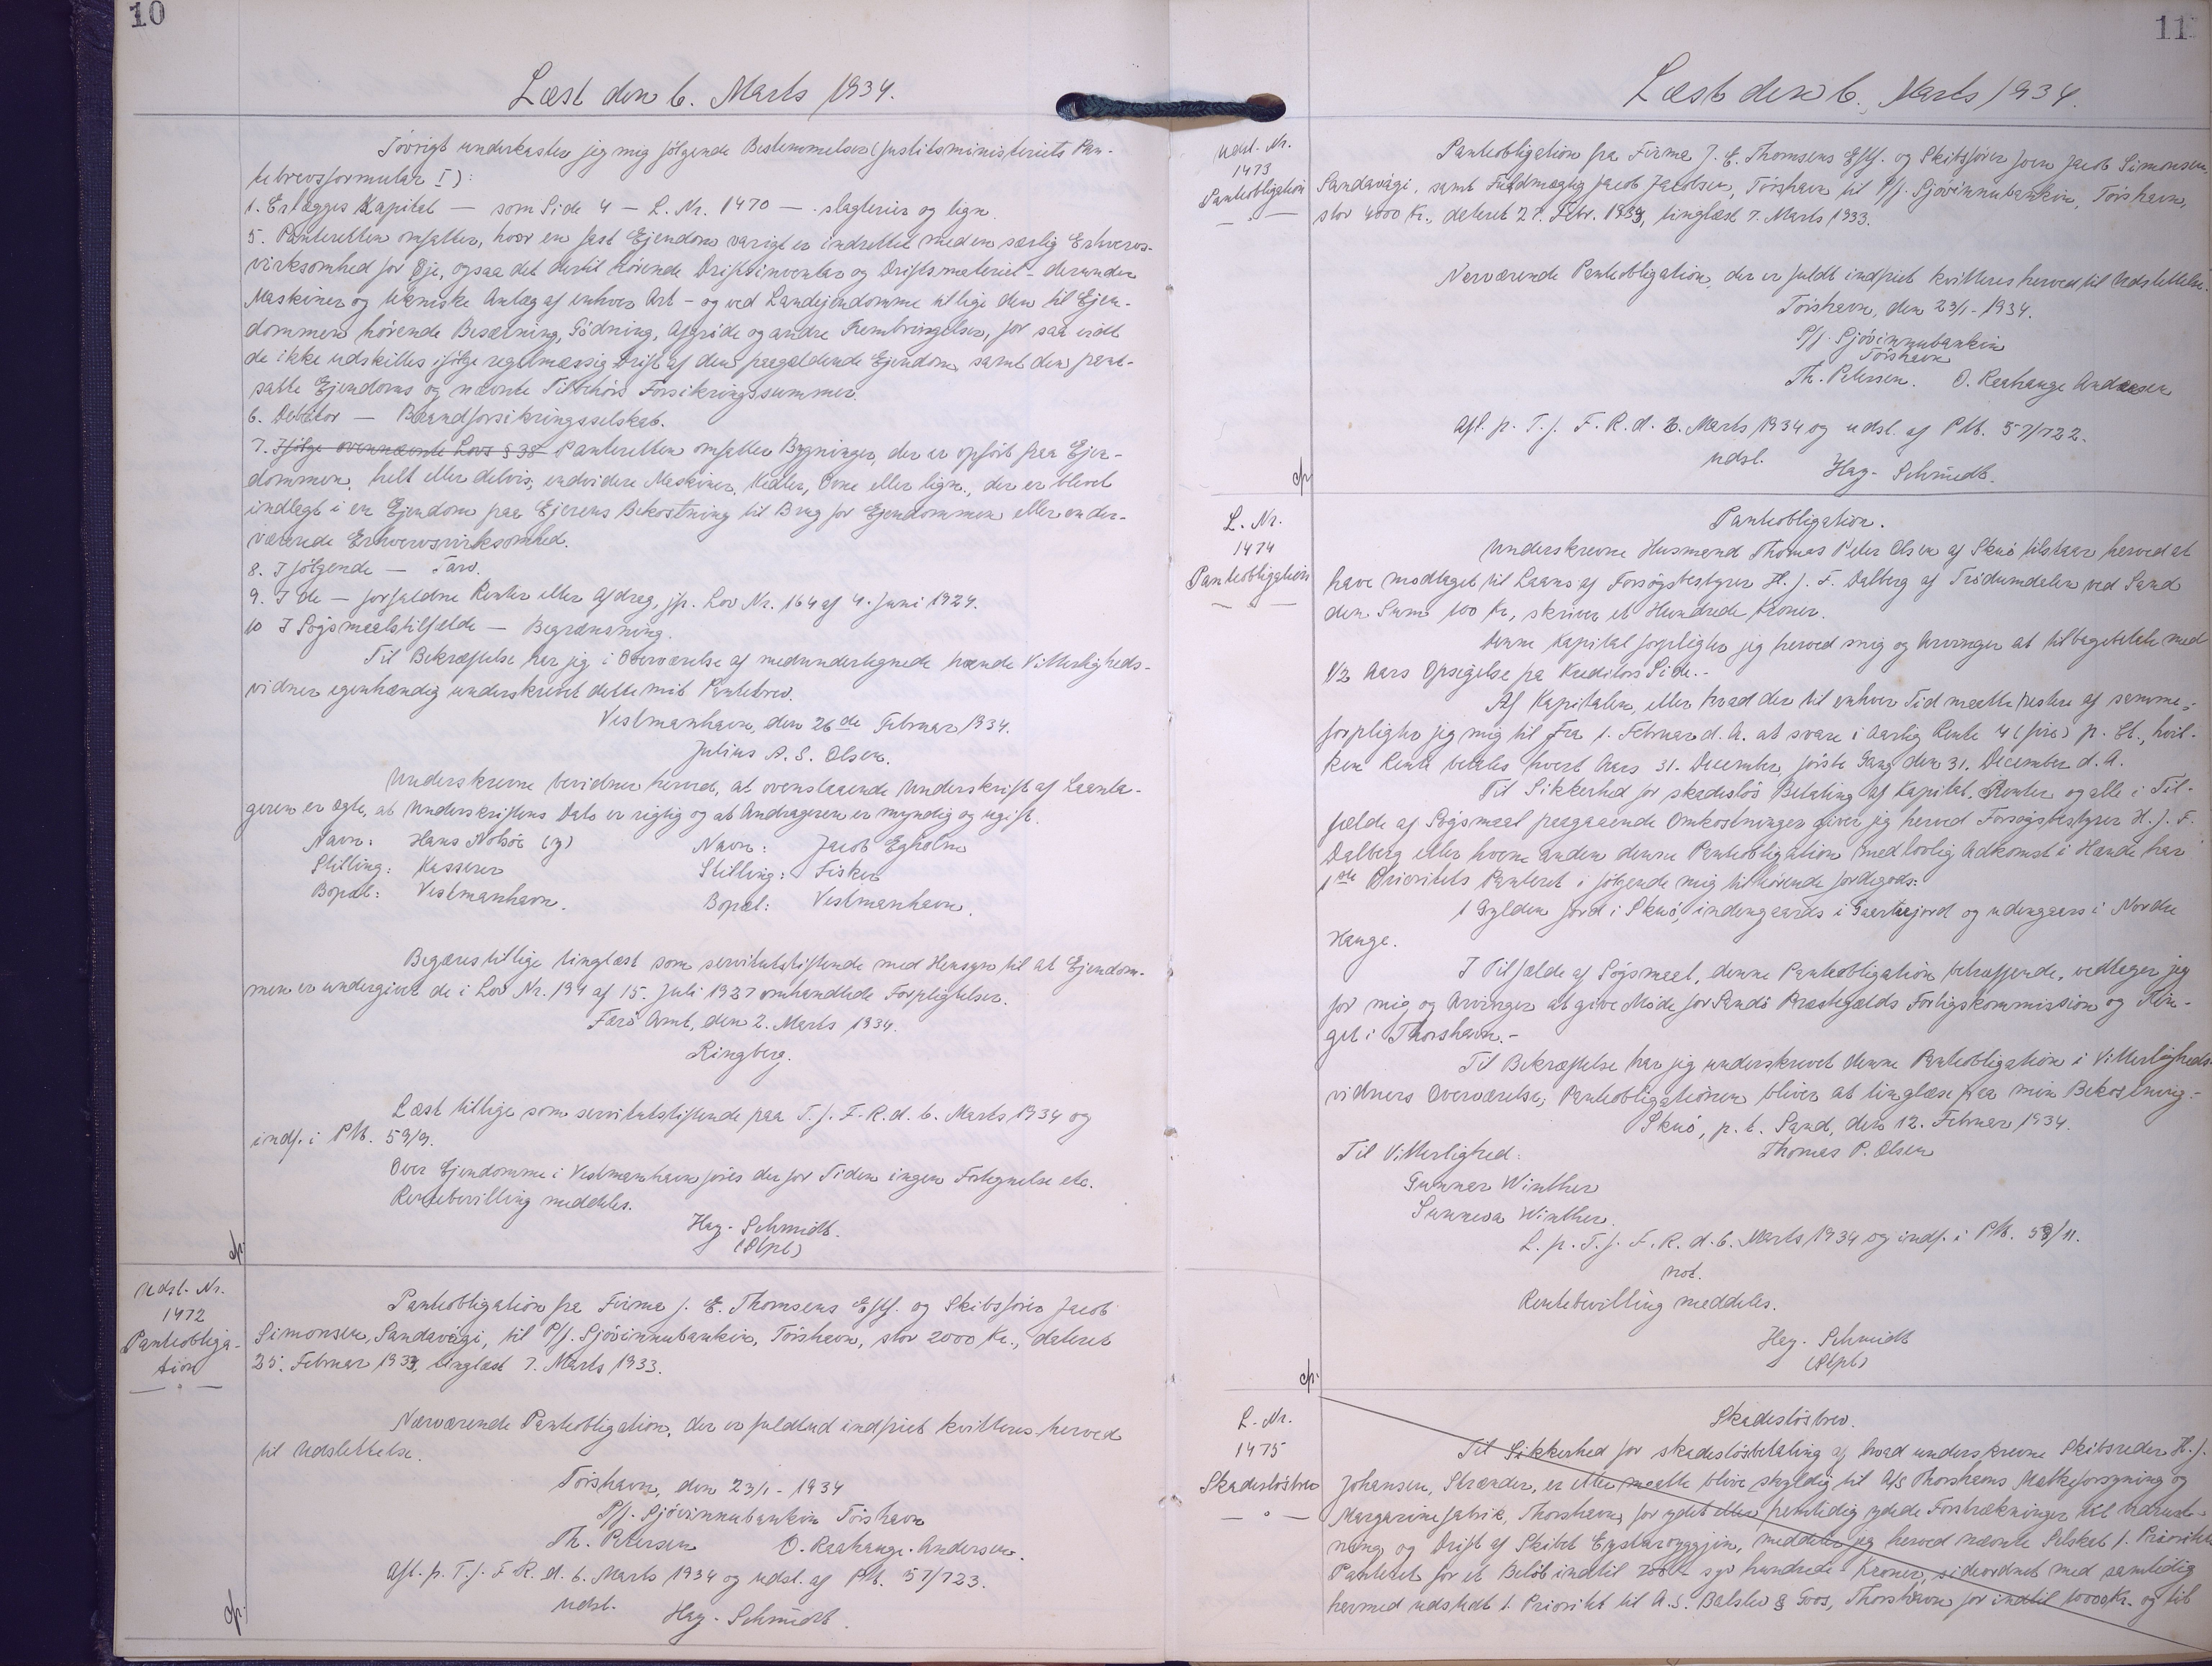 10
Læst den 6. Marts 1934.
Iøvrigt underkaster jeg mig følgende Bestemmelser (Justitsministeriets Pan-
tebrevsformular I):
1. Erlægges Kapital — som Side 4 — L. Nr. 1470 — slagterier og lign.
5. Panteretten omfatter, hvor en fast Ejendom varigt er indrettet med en særlig Erhvervs-
virksomhed for Øje, ogsaa det dertil hörende Driftsinventar og Driftsmateriel - derunder
Maskiner og tekniske Anlæg af enhver Art - og ved Landejendomme tillige den til Ejen-
dommen hörende Besætning, Gödning, Afgröde og andre Frembringelser, for saa vidt
de ikke udskilles ifölge regelmæssig Drift af den paagældende Ejendom, samt den pant-
satte Ejendoms og nævnte Tilbehörs Forsikringssummer.
6. Debitor — Brandforsikringsselskab.
7. Ifölge ovennævnte Lovs § 38 Panteretten omfatter Bygninger, der er opfört paa Ejen-
dommen, helt eller delvis, endvidere Maskiner, Kedler, Ovne eller lign., der er blevet
indlagt i en Ejendom paa Ejerens Bekostning til Brug for Ejendommen eller en der-
værende Erhvervsvirksomhed.
8. I fölgende — Tarv.
9. I de — forfaldne Renter eller Afdrag, jfr. Lov Nr. 164 af 4. Juni 1924.
10 I Sögsmaalstilfælde — Begrænsning.
Til Bekræftelse har jeg i Overværelse af medundertegnede tvende Vitterligheds-
vidner egenhændig underskrevet dette mit Pantebrev.
Vestmanhavn, den 26de Februar 1934.
Julius A. S. Olsen.
Underskrevne bevidner herved, at ovenstaaende Underskrift af Laanta-
geren er ægte, at Underskriftens Dato er rigtig og at Andrageren er myndig og ugift.
Navn: Hans Nolsöe (g) Navn: Jacob Egholm
Stilling: Kasserer Stilling: Fisker
Bopæl: Vestmanhavn. Bopæl: Vestmanhavn.
Begæres tillige tinglæst som servitutstiftende med Hensyn til at Ejendom-
men er undergivet de i Lov Nr. 194 af 15. Juli 1927 omhandlede Forpligtelser.
Færö Amt, den 2. Marts 1934.
Ringberg.
Læst tillige som servitutstiftende paa T. f. F. R. d. 6. Marts 1934 og
indf. i Ptb. 59/9.
Over Ejendomme i Vestmanhavn föres der for Tiden ingen Fortegnelse etc.
Rentebevilling meddeles.
Hag. Schmidt.
(Stpl)
cfr.
Udsl. Nr.
1472
Panteobliga-
tion
Panteobligation fra Firma J. E. Thomsens Eftf. og Skibsförer Jacob
Simonsen, Sandavági, til P/f. Sjóvinnubankin, Tórshavn, stor 2000 Kr., dateret
25. Februar 1933, tinglæst 7. Marts 1933.
Nærværende Panteobligation, der er fuldtud indfriet kvitteres herved
til Udslettelse.
Tórshavn, den 23/1 - 1934
P/f. Sjóvinnubankin Tórshavn
Th. Petersen O. Raahauge-Andersen.
Afl. p. T. f. F. R. d. 6. Marts 1934 og udsl. af Ptb. 57/723.
Udsl.
Hag. Schmidt.
cfr.
11
Læst den 6. Marts 1934.
Udsl. Nr.
1473
Panteobligation
Panteobligation fra Firma J. E. Thomsens Eftf. og Skibsförer Joen Jacob Simonsen,
Sandavági, samt Fuldmægtig Jacob Jacobsen, Tórshavn til P/f. Sjóvinnubankin, Tórshavn,
stor 4000 Kr., dateret 27. Febr. 1933, tinglæst 7. Marts 1933.
Nærværende Panteobligation, der er fuldt indfriet kvitteres herved til Udslettelse.
Tórshavn, den 23/1 - 1934.
P/f. Sjóvinnubankin
Tórshavn
Th. Petersen. O. Raahauge Andersen
Afl. p. T. f. F. R. d. 6. Marts 1934 og udsl. af Ptb. 57/722.
Udsl.
Hag. Schmidt.
cfr
L. Nr.
1474
Panteobligation
Panteobligation.
Underskrevne Husmand Thomas Peter Olsen af Skuö tilstaar herved at
have modtaget til Laans af Forsögsbestyrer H. J. F. Dalberg af Trödumdalen ved Sand
den Sum 100 Kr., skriver et Hundrede Kroner.
Denne Kapital forpligter jeg herved mig og Arvinger at tilbagebetale med
1/2 Aars Opsigelse fra Kreditors Side.-
Af Kapitalen, eller hvad der til enhver Tid maatte restere af samme,
forpligter jeg mig til fra 1. Februar d. A. at svare i Aarlig Rente 4 (fire) p. Ct., hvil-
ken Rente betales hvert Aars 31. December, förste Gang den 31. December d. A.
Til Sikkerhed for skadeslös Betaling af Kapital, Renter og alle i Til-
fælde af Sögsmaal paagaaende Omkostninger giver jeg herved Forsögsbestyrer H. J. F.
Dalberg eller hvem anden denne Panteobligation med lovlig Adkomst i Hænde har
1ste Prioritets Panteret i fölgende mig tilhörende Jordegods:
1 Gylden Jord i Skuö, indengaards i Gaartiejord og udengaars i Nordre
Hauge.
I Tilfælde af Sögsmaal, denne Panteobligation betræffende, vedtager jeg
for mig og Arvinger at give Möde for Sandö Præstegælds Forligskommission og Tin-
get i Thorshavn.-
Til Bekræftelse har jeg underskrevet denne Panteobligation i Vitterligheds-
vidners Overværelse, Panteobligationen bliver at tinglæse paa min Bekostning.-
Skuö, p. t. Sand, den 12. Februar 1934.
Til Vitterlighed: Thomas P. Olsen
Gunnar Winther
Sunneva Winther.
L. p. T. f. F. R. d. 6. Marts 1934 og indf. i Ptb. 59/11.
Not.
Rentebevilling meddeles.
Hag. Schmidt
(Stpl)
cfr.
L. Nr.
1475
Skadeslösbrev
Skadeslösbrev.
Til Sikkerhed for skadeslösbetaling af hvad underskrevne Skibsreder H. J.
Johansen, Strænder, er eller maatte blive skyldig til A/S Thorshavns Mælkeforsyning og
Margarinefabrik, Thorshavn, for ydet eller fremtidig ydede Forstrækninger til Udrust-
ning og Drift af Skibet Eysturoyggjin, meddeler jeg herved nævnte Selskab 1. Prioritets
Panteret for et Belöb indtil 700 - syv hundrede - Kroner, sideordnet med samtidig
hermed udstedt 1. Prioritet til A. S. Balslev & Goos, Thorshavn for indtil 10000 Kr. og til